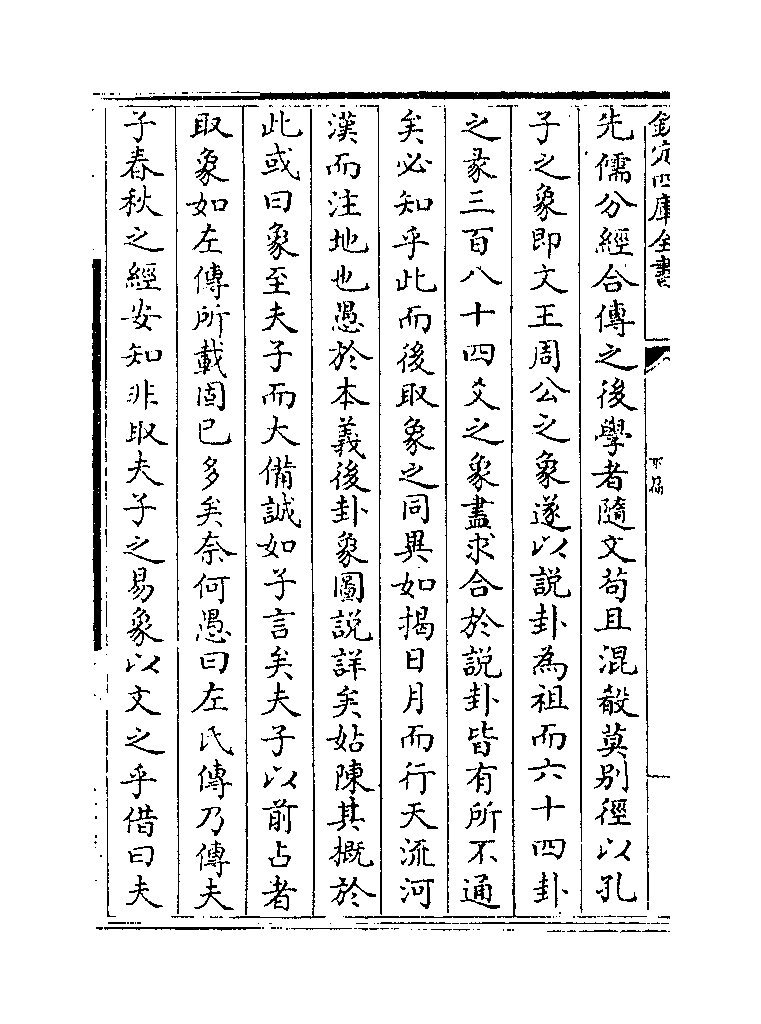 欽定四庫全書
先儒分經合傳之後學者隨文苟且混殽莫别徑以孔
子之象即文王周公之象遂以說卦為祖而六十四卦
之彖三百八十四爻之象盡求合於說卦皆有所不通
矣必知乎此而後取象之同異如揭日月而行天流河
漢而注地也愚於本義後卦象圖說詳矣姑陳其概於
此或曰象至夫子而大備誠如子言矣夫子以前占者
取象如左傳所載固已多矣奈何愚曰左氏傳乃傳夫
子春秋之經安知非取夫子之易象以文之乎借曰夫